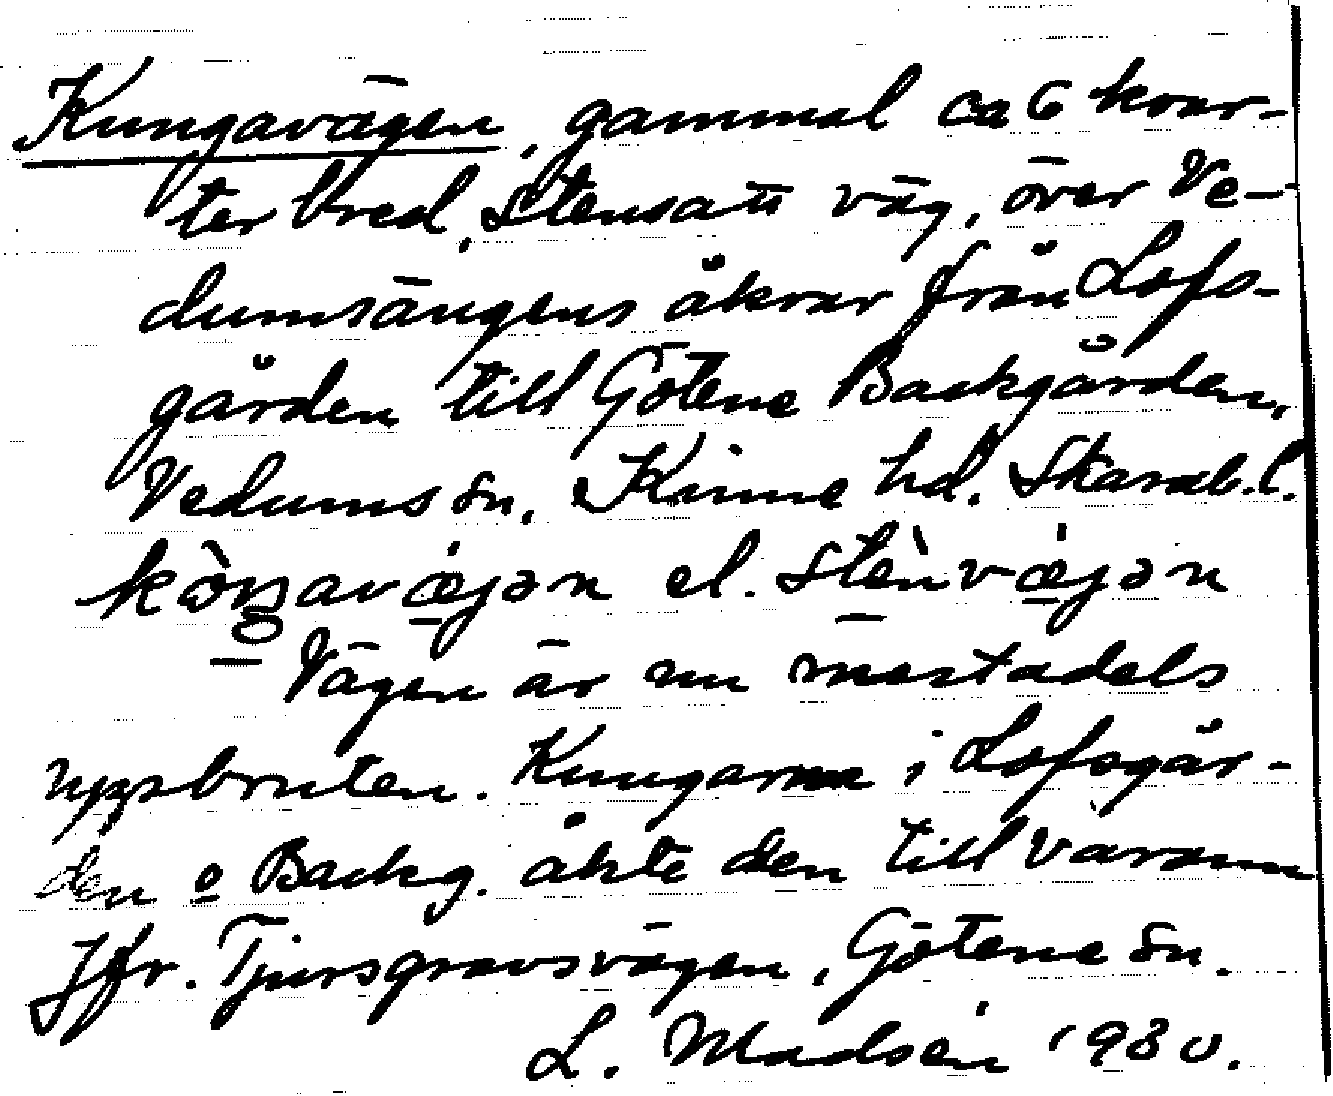 Kungavägen, gammal ca 6 kvar-
ter bred, stensatt väg, över Ve-
dumsängens åkrar från Lofs-
gården till Götene Backgården,
Vedums sn. Kinne hd. Skarab. l.
kòŋavæ̀jən el. stènvæ̀jən
Vägen är nu mestadels
uppbruten. Kungarna i Lofsgår-
den o Backg. åkte den till varann
Jfr. Tjursgravsvägen, Götene sn.
L. Madsén 1930.